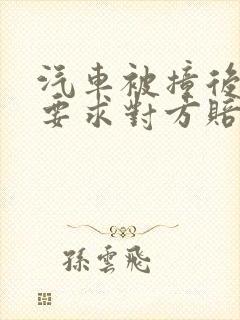 汽車被撞後
要求對方賠
孫雲飛